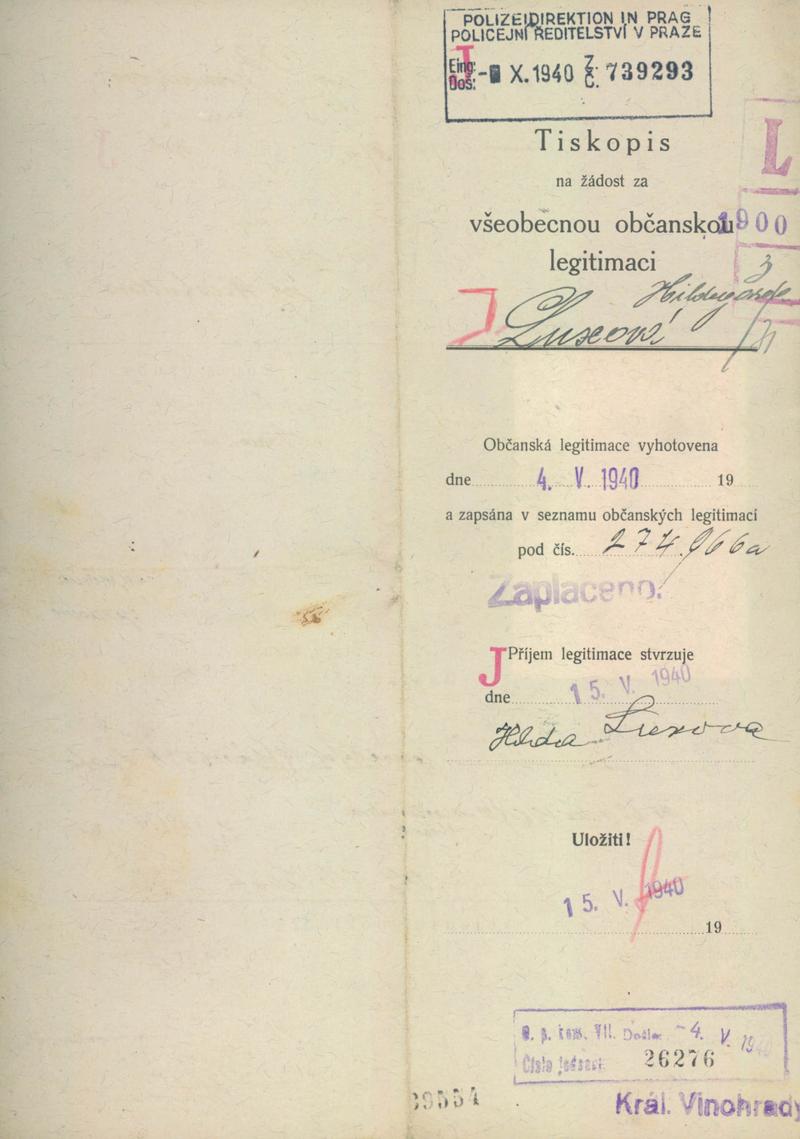 POLIZEIDIREKTION IN PRAG
POLICEJNÍ ŘEDITELSTVÍ V PRAZE
J
Eing:
Doš:
X. 1940 Z. Č. 739293
Tiskopis
L
na žádost za
všeobecnou občanskou
1900
legitimaci
3
Hildegarda
J
Luxová
Občanská legitimace vyhotovena
dne 4. V. 1940 19
a zapsána v seznamu občanských legitimací
pod čís. 274.966a
Zaplaceno.
J
Příjem legitimace stvrzuje
dne 15. V. 1940
Hilda Luxova
Uložiti!
15. V. 1940
19
Došlo: - 4. V. 19
Číslo jednací: 26276
39554
Král. Vinohrady